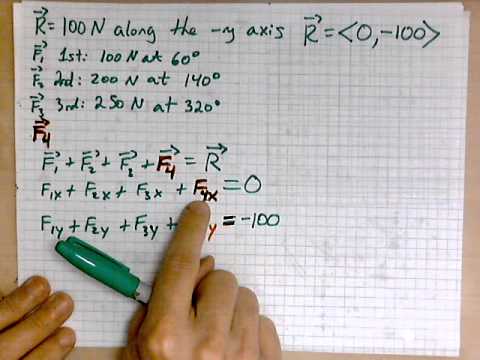 R⃗ = 100 N along the -y axis R⃗ = <0, -100>
F⃗₁ 1st: 100 N at 60°
F⃗₂ 2rd: 200 N at 140°
F⃗₃ 3rd: 250 N at 320°
F⃗₄
F⃗₁ + F⃗₂ + F⃗₃ + F⃗₄ = R⃗
F₁x + F₂x + F₃x + F₄x = 0
F₁y + F₂y + F₃y + y = -100